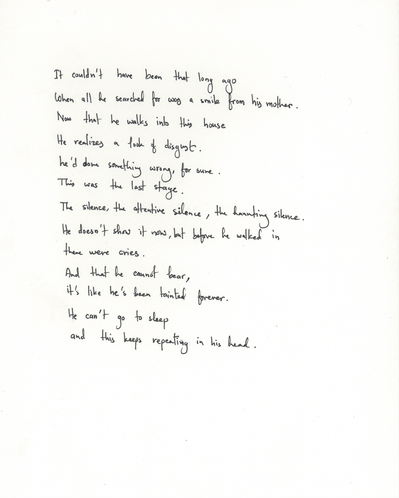 It couldn't have been that long ago
When all he searched for was a smile from his mother.
Now that he walks into this house
He realizes a look of disgust.
he'd done something wrong, for sure.
This was the last stage.
The silence, the attentive silence, the haunting silence.
He doesn't show it now, but before he walked in
there were cries.
And that he cannot bear,
it's like he's been tainted forever.
He can't go to sleep
and this keeps repeating in his head.